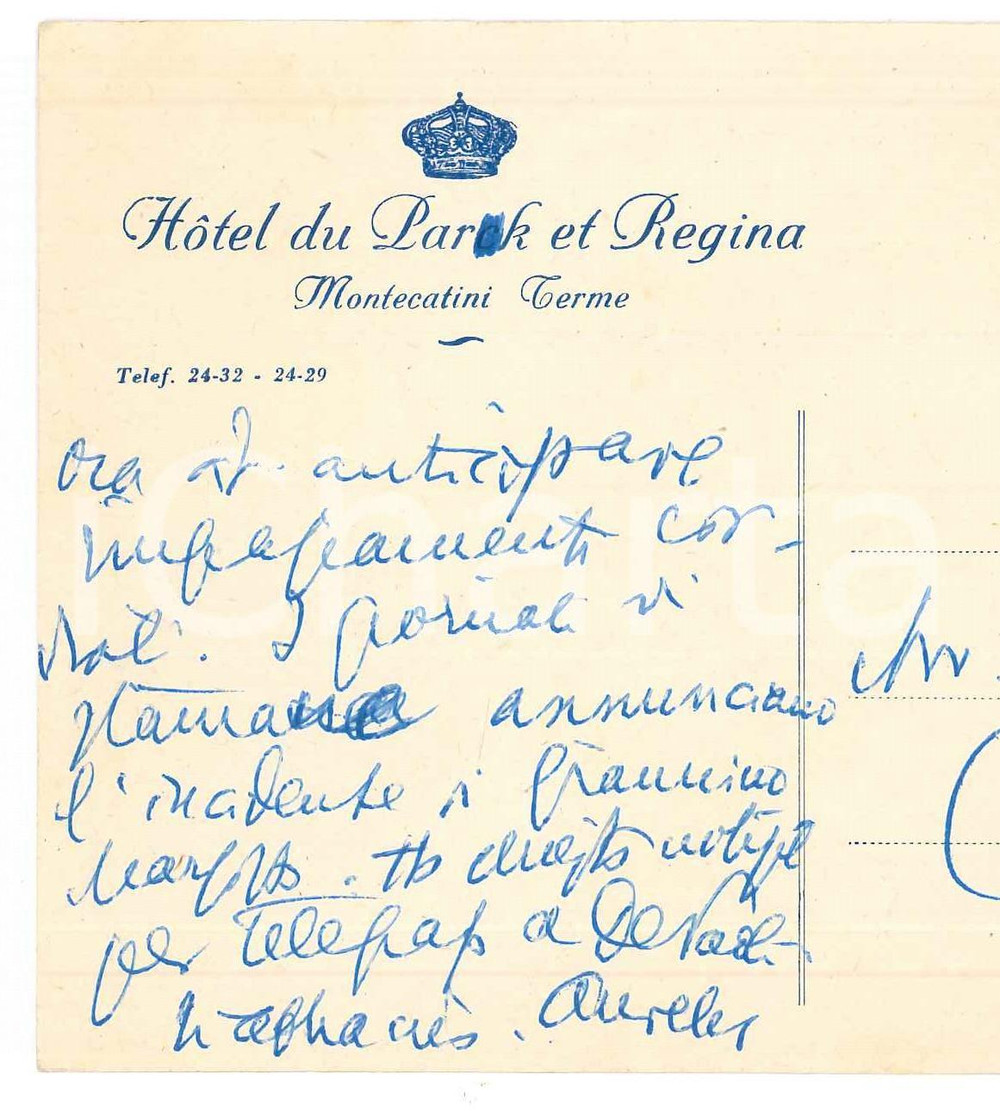 Hôtel du Parck et Regina
Montecatini Terme
Telef. 24-32 - 24-29
ora di anticipare
ringraziamenti cor-
diali. I giornali di
stamane annunciano
l'incidente di Giannino
Marzotto. Ho chiesto notizie
per telegrafo a
Aurelio
iCharta